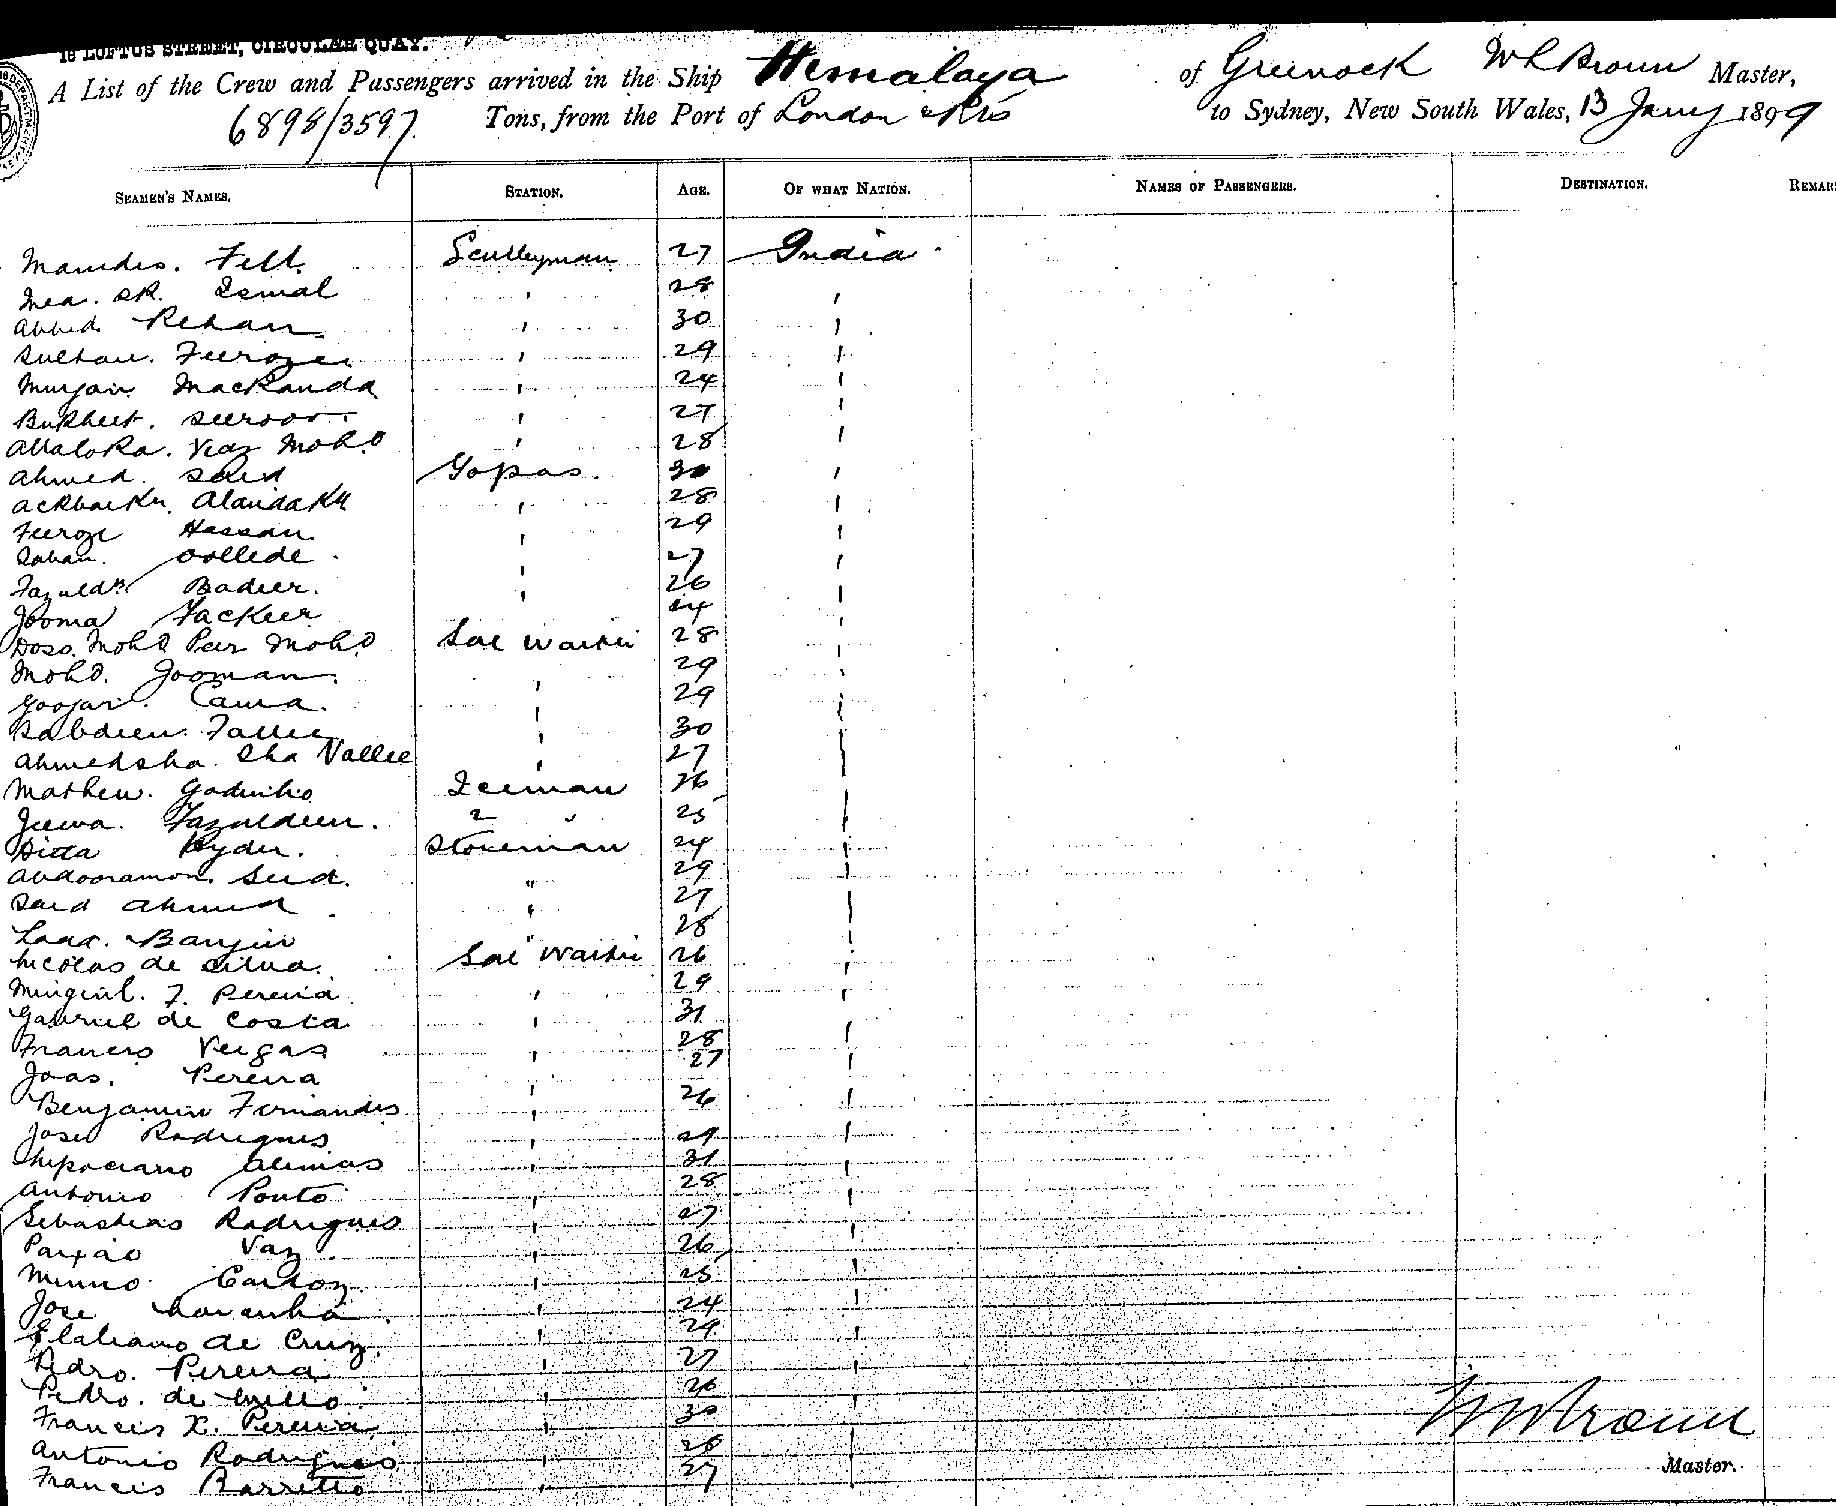 16 LOFTUS STREET, CIRCULAR QUAY.
A List of the Crew and Passengers arrived in the Ship Himalaya of Greenock W L Broun Master,
6898/3597 Tons, from the Port of London & Pts to Sydney, New South Wales, 13 Jany 1899
SEAMEN'S NAMES. STATION. AGE. OF WHAT NATION. NAMES OF PASSENGERS. DESTINATION. REMAR
Scullyman 27 India
Ismal 28
Abbed Rehan 30
Sultan. Feroze 29
Murjan Mackanda 24
Bukheet. Seeroor 27
Vaz Mohd 28
Ahmed Said Topas. 30
28
Feroze Hassan 29
27
Badeer. 26
Jooma Fackeer 24
Doso. Mohd Peer Mohd Sal Waitie 28
Mohd. Jooman 29
Goojar. Cama. 29
30
Ahmedsha. Sha Vallee 27
Mathew. Godinho Iceman 26
Jeewa. Fazuldeen. " " 25
Ditta Hyder. Storeman 24
Abdooramon. Seid. " 29
Said Ahmed " 27
" 28
Nicolas de Silva. Sal Waitie 26
F. Pereira 29
Gabriel de Costa 31
Francis Veigas 28
Joas. Pereira 27
Benjamin Fernandis 26
Jose Rodrigues 29
31
Antonio Ponto 28
Sebastiao Rodrigues 27
Paixao Vaz 26
Minno Cardoz 25
Jose Noronha 24
de Cruz. 29
Pedro. Pereira 27
Pedro. de Mello 26
Francis X. Pereira 30
Antonio Rodrigues 28
Francis Barretto 27
W L Broun
Master.